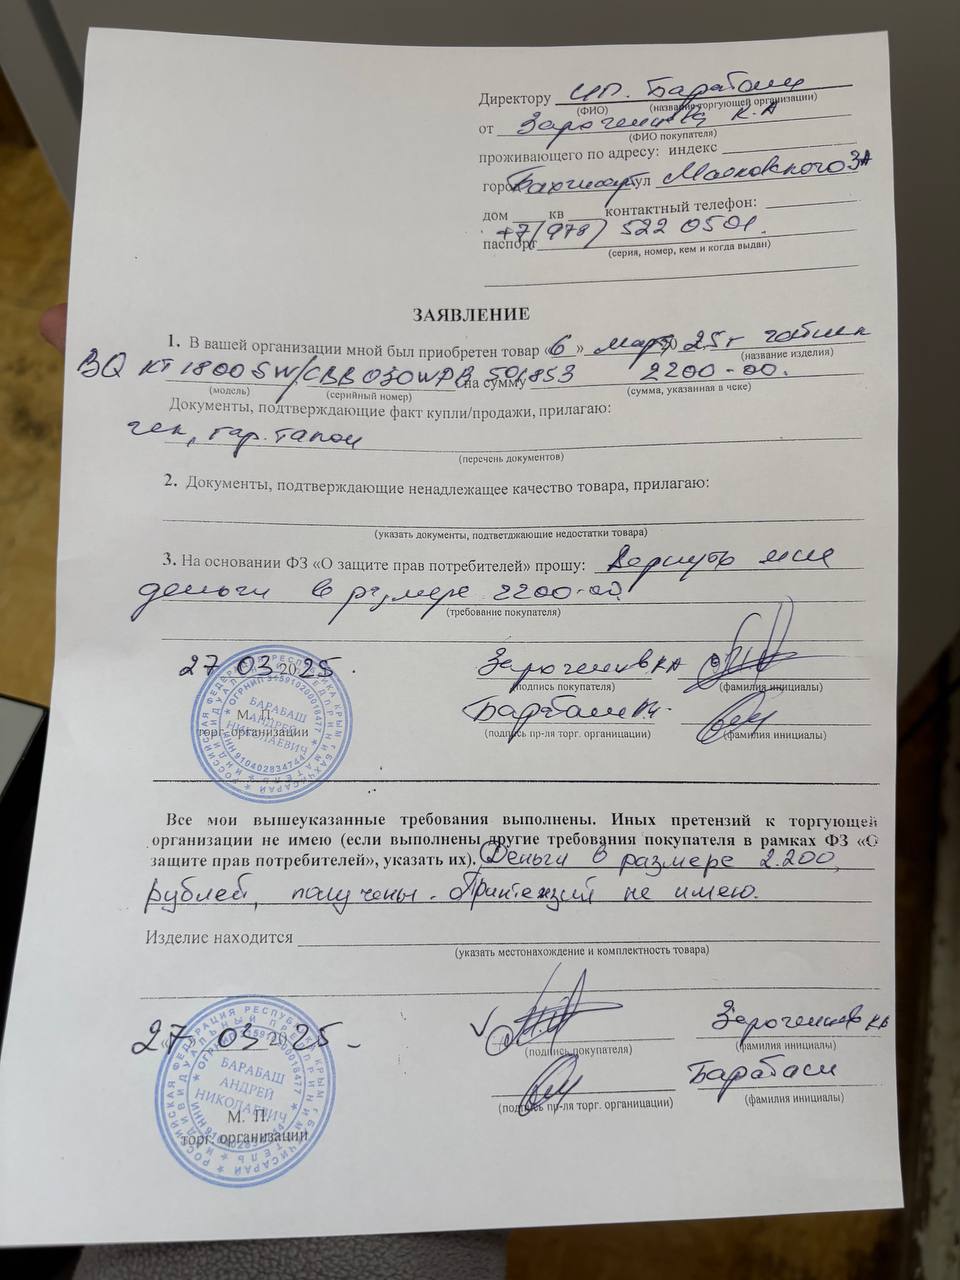 Директору ИП. Барабаш
(ФИО) (название торгующей организации)
от К.А
(ФИО покупателя)
проживающего по адресу: индекс
город Бахчисарай ул Маяковского 3А
дом кв контактный телефон:
+7(978) 522 0501.
паспорт
(серия, номер, кем и когда выдан)
ЗАЯВЛЕНИЕ
1. В вашей организации мной был приобретен товар «6» март 25г чайник
(название изделия)
BQ KT1800SW/ на сумму 2200-00.
(модель) (серийный номер) (сумма, указанная в чеке)
Документы, подтверждающие факт купли/продажи, прилагаю:
чек, гар. талон
(перечень документов)
2. Документы, подтверждающие ненадлежащее качество товара, прилагаю:
(указать документы, подтветджающие недостатки товара)
3. На основании ФЗ «О защите прав потребителей» прошу: Вернуть мне
деньги в размере 2200-00.
(требование покупателя)
27 03 2025.
(подпись покупателя) (фамилия инициалы)
Барабаш
М. П.
торг. организации
(подпись пр-ля торг. органицации) (фамилия инициалы)
РОССИЙСКАЯ ФЕДЕРАЦИЯ РЕСПУБЛИКА КРЫМ Г. БАХЧИСАРАЙ
ИНДИВИДУАЛЬНЫЙ ПРЕДПРИНИМАТЕЛЬ
ОГРНИП 315910200018477
ИНН 910402834744
БАРАБАШ
АНДРЕЙ
НИКОЛАЕВИЧ
Все мои вышеуказанные требования выполнены. Иных претензий к торгующей
организации не имею (если выполнены другие требования покупателя в рамках ФЗ «О
защите прав потребителей», указать их). Деньги в размере 2.200,
рублей, получены. Притензий не имею.
Изделие находится
(указать местонахождение и комплектность товара)
27 03 2025
(подпись покупателя) (фамилия инициалы)
Барабаш
(подпись пр-ля торг. органицации) (фамилия инициалы)
РОССИЙСКАЯ ФЕДЕРАЦИЯ РЕСПУБЛИКА КРЫМ Г. БАХЧИСАРАЙ
ИНДИВИДУАЛЬНЫЙ ПРЕДПРИНИМАТЕЛЬ
ОГРНИП 315910200018477
ИНН 910402834744
БАРАБАШ
АНДРЕЙ
НИКОЛАЕВИЧ
М. П.
торг. организации